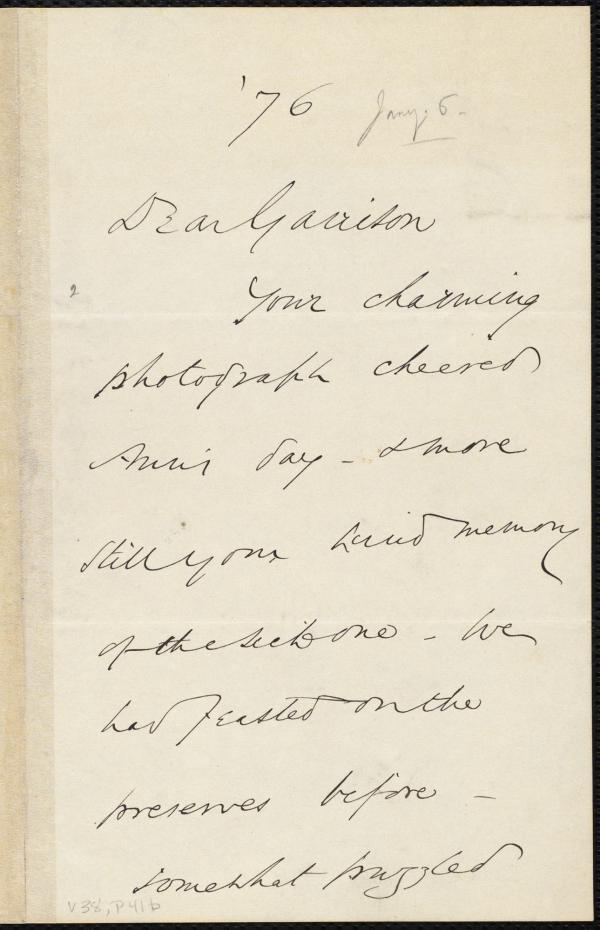 '76 Jany. 6.
Dear Garrison
2
Your charming
photograph cheered
Ann's day - & more
still your kind memory
of the sick one - We
had feasted on the
preserves before -
somewhat puzzled
V38, P41b